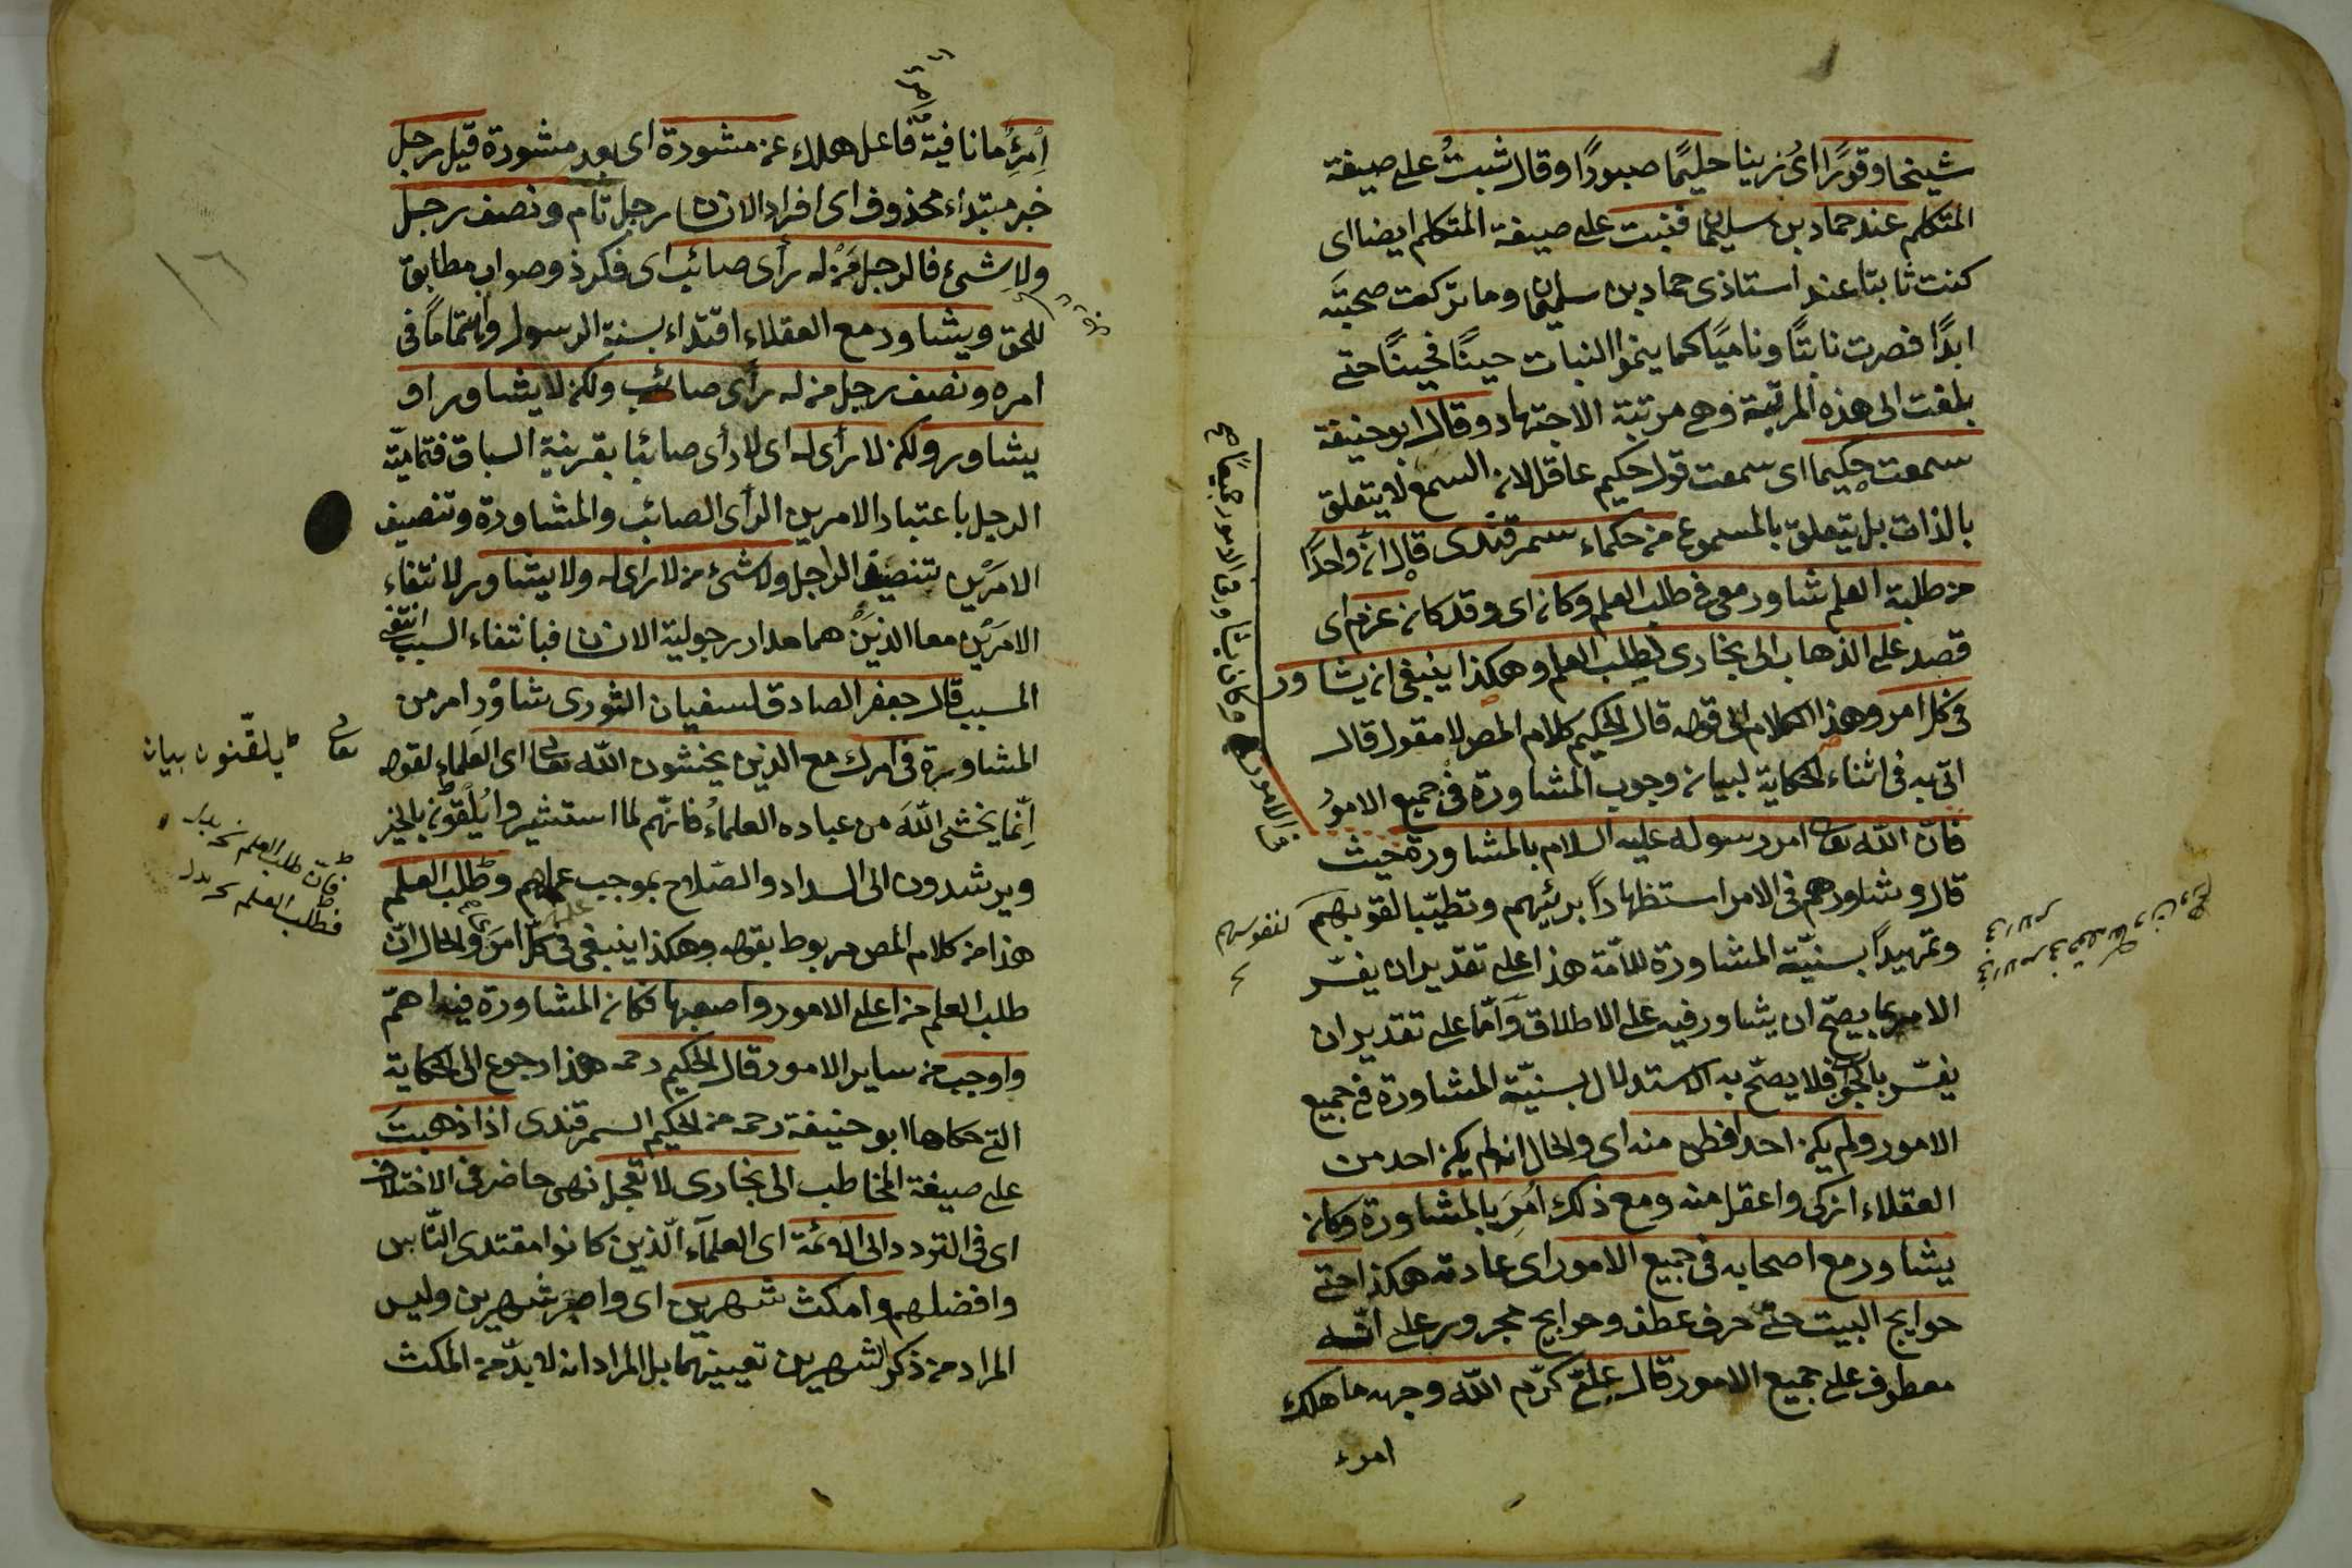 شيخا وقورًا اى زينا حليمًا صبورًا وقال ثبتُ على صيغة
المتكلم عند حماد بن سليمان فنبت على صيغة المتكلم ايضا اى
كنت ثابتا عند استاذى حماد بن سليمان وما تركت صحبتَه
ابدًا فصرت نابتًا وناميًا كما ينمو النبات حينًا فحينًا حتى
بلغت الى هذه المرتبة وهى مرتبة الاجتهاد وقال ابو حنيفة
سمعت حكيما اى سمعت قول حكيم عاقل لان السمع لا يتعلق
بالذات بل يتعلق بالمسموع من حكماء سمرقندى قال ان واحدًا
من طلبة العلم شاور معى فى طلب العلم وكان اى وقد كان عزم اى
قصد على الذهاب الى بخارى لطلب العلم وهكذا ينبغى ان يشاور
فى كل امر وهذا الكلام الى قوله قال الحكيم كلام المص لا مقول قال
اتى به فى اثناء الحكاية لبيان وجوب المشاورة فى جميع الامورُ
فان الله تعالى امر رسوله عليه السلام بالمشاورة حيث
قال وشاورهم فى الامر استظهارًا برئيهم وتطيّبا لقوبهم
وتمهيدًا بسنيّة المشاورة للامّة هذا على تقدير ان يفسّر
الامر بما يصحّ ان يشاور فيه على الاطلاق وَامّا على تقدير ان
يفسّر بالحرب فلا يصحّ به الاستدلال بسنيّة المشاورة فى جميع
الامور ولم يكن احد افطن منه اى والحال انه لم يكن احد من
العقلاء ازكى واعقل منه ومع ذلك اُمِرَ بالمشاورة وكان
يشاور مع اصحابه فى جميع الامور اى عادته هكذا حتى
حوايج البيت حتى حرف عطف وحوايج مجرور على انّه
معطوف على جميع الامور قال علىّ كرّم الله وجهه ما هلك
امرء
وكان يشاور فى الامور جميعًا صح
فى الامور
لنفوسهم
اِمرِءُ ما نافية فاعل هلك عن مشورة اى بعد مشورة قيل رجل
خبر مبتداء محذوف اى افراد الانسان رجل تام ونصف رجل
ولا شئ فالرجل مَنْ له رأى صائب اى فكر ذو صواب مطابق
للحق ويشاور مع العقلاء اقتداء بسنة الرسول واهتمامًا فى
امره ونصف رجل من له رأى صائب ولكن لا يشاور او
يشاور ولكن لا رأى له اى لا رأى صائبا بقرينة السباق فتماميّة
الرجل باعتبار الامرين الرأى الصائب والمشاورة وتنصيف
الامرَيْن تنصيف الرجل ولا شئ من لا رأى له ولا يشاور لانتفاء
الامرَيْن معا الذينْ هما مدار رجولية الانسان فبانتفاء السبب انتفى
المسبب قال جعفر الصادق لسفيان الثورى شاوْرِ امر من
المشاورة فى امرك مع الذين يخشون الله تعالى اى العلماء لقوله
اِنّما يخشى اللّهَ من عباده العلماءُ فانّهم لما استشيروا يُلَقّون بالخير
ويرشدون الى السداد والصّلاح بموجب علمهم وطلب العلم
هذا من كلام المص مربوط بقوله وهكذا ينبغى فى كلّ امرَ والحال انّ
طلب العلم من اعلى الامور واصعبها فكان المشاورة فيه اهمّ
واوجب من ساير الامور قال الحكيم رحمه هذا رجوع الى الحكاية
التى حكاها ابو حنيفة رحمه من الحكيم السمرقندى اذا ذهبتَ
على صيغة المخاطب الى بخارى لا تعجل نهى حاضر فى الاختلاف
اى فى التردد الى الائمة اى العلمآء الّذين كانوا مقتدى النّاس
وافضلهم وامكث شهرين اى واصبر شهرين وليس
المراد من ذكر الشهرين تعيينهما بل المراد انه لا بدّ من المكث
تعالى
يلقّنون بيان
فانّ طلب العلم نخ بدل
فطلب العلم نخ بدل
١٦